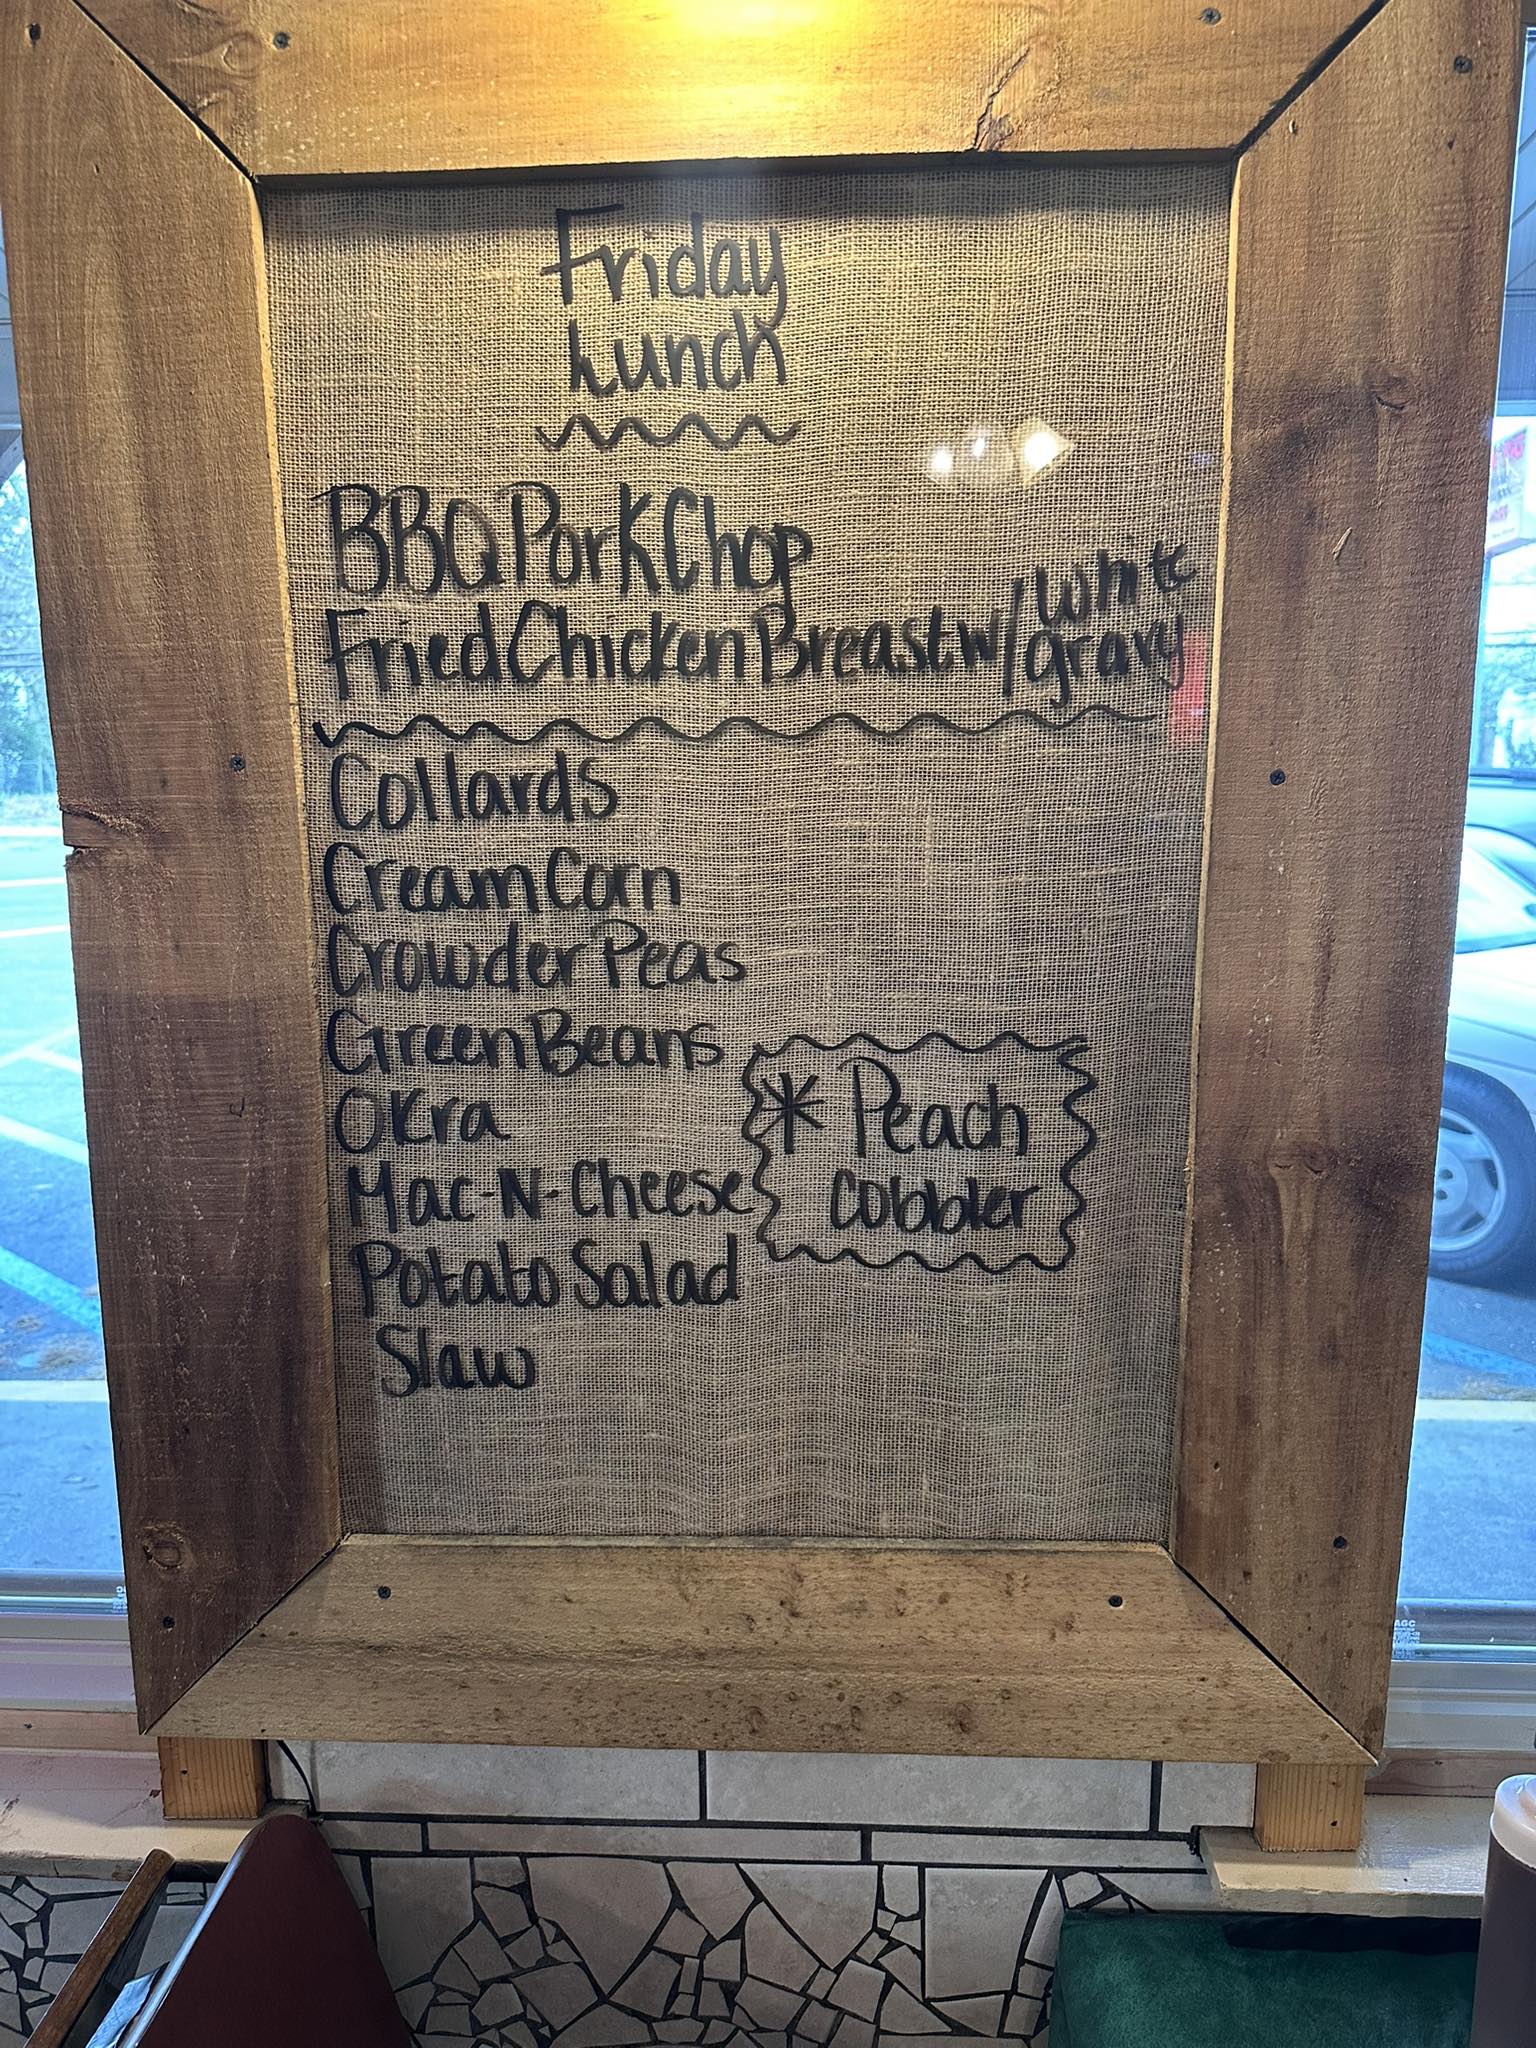 Friday
Lunch
BBQ Pork Chop
Fried Chicken Breast w/ white gravy
Collards
Cream Corn
Crowder Peas
Green Beans
Okra
Mac-N-Cheese
* Peach
Cobbler
Potato Salad
Slaw
AGC